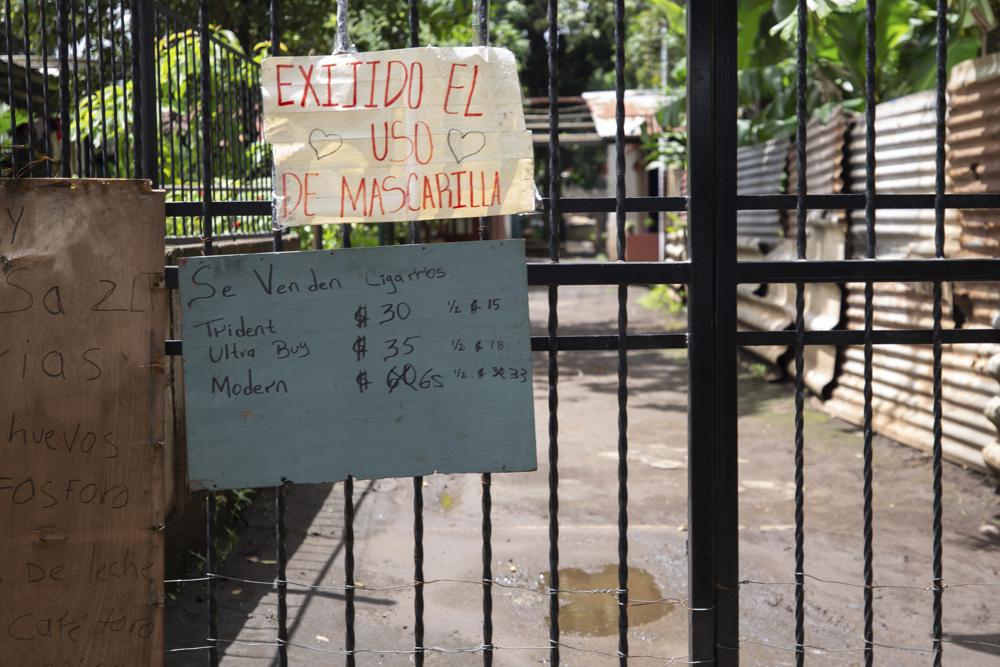 EXIJIDO EL
USO
DE MASCARILLA
Se Venden Cigarros
Trident $ 30 1/2 $ 15
Ultra Buy $ 35 1/2 $ 18
Modern $ 65 1/2 $ 33
Y
Sa 2
rias
huevos
FOSFORO
De leche
Café toro